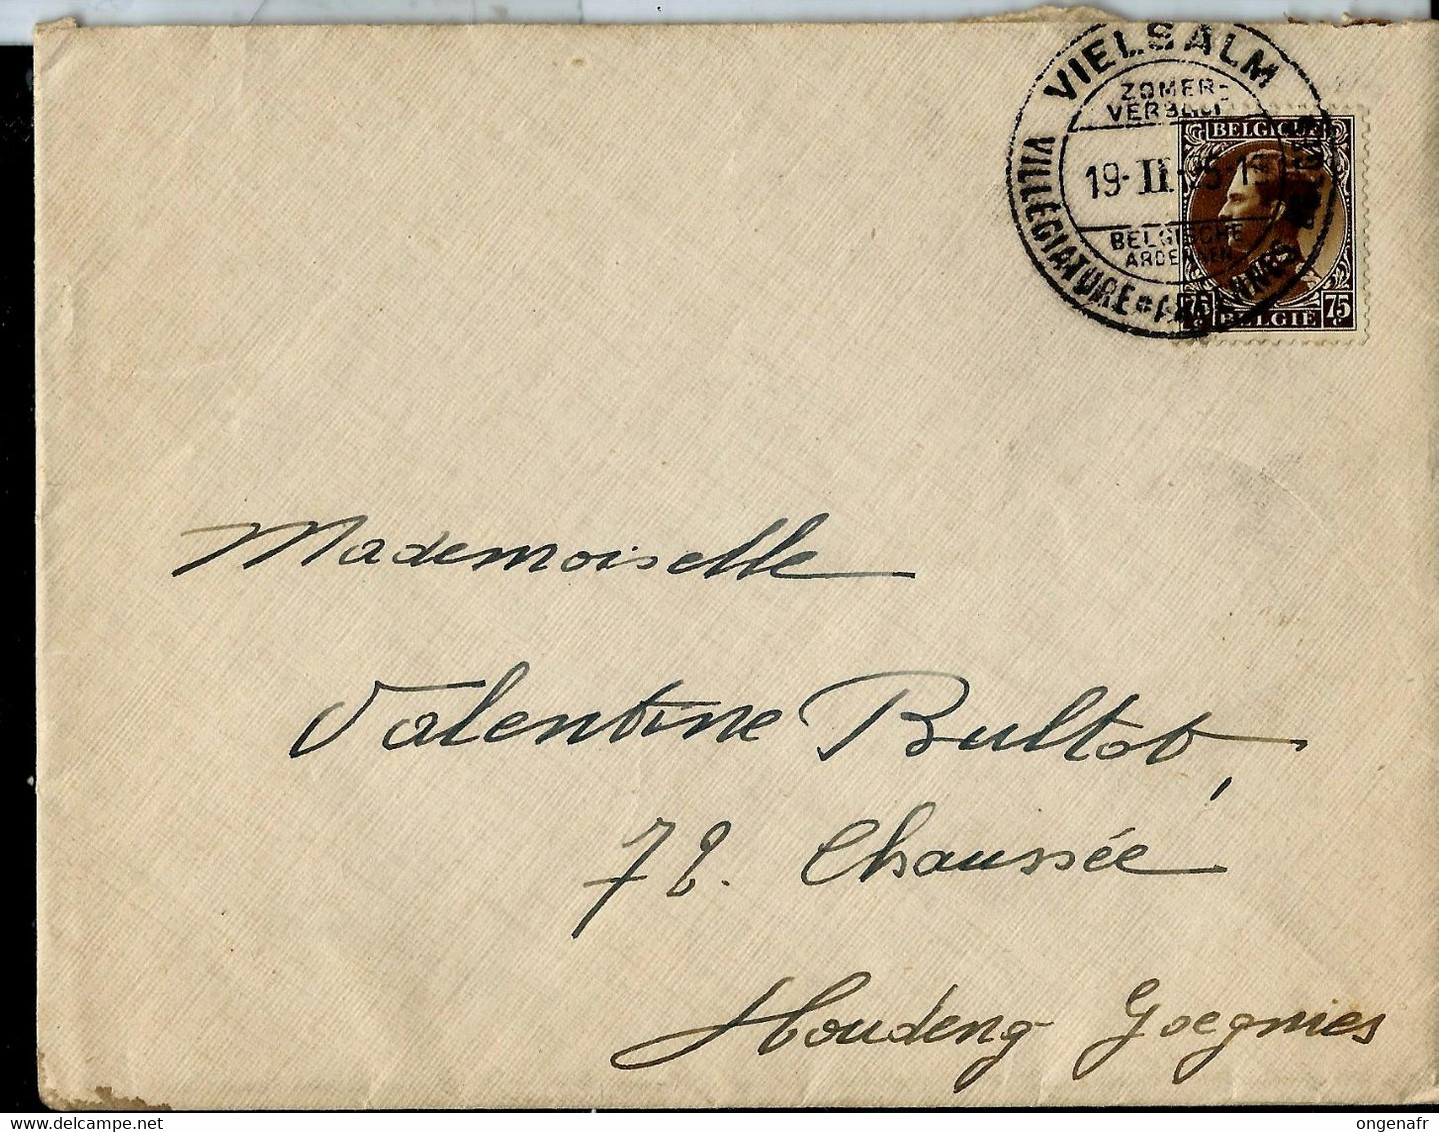 VIELSALM
ZOMER-
VERBLIJF
19-II-
BELGISCHE
ARDENNEN
VILLÉGIATURE * ARDENNES
BELGIQUE
75c BELGIE 75c
Mademoiselle
Valentine Bultot,
72. Chaussée
Houdeng Goegnies
ongenafr